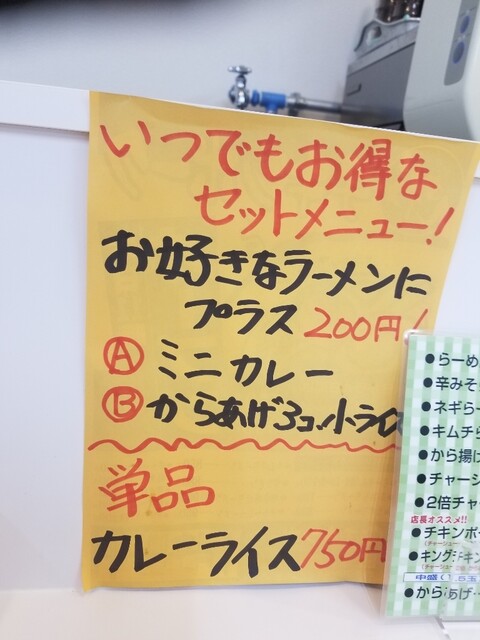 いつでもお得な
セットメニュー!
お好きなラーメンに
プラス200円!
Ⓐ ミニカレー
Ⓑ からあげ3コ.小ライ
単品
カレーライス750円
●らーめ
●辛みそ
●ネギらー
●キムチら
●から揚げ
●チャーシ
●2倍チャ
店長オススメ!!
●チキンボー
●キング
中盛(1.5玉
●からあげ…